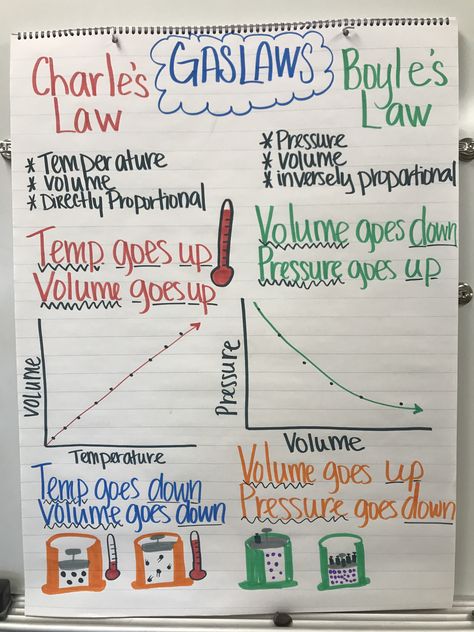 GAS LAWS
Charle's
Law
* Temperature
* Volume
* Directly Proportional
Temp goes up
Volume goes up
Volume
Temperature
Temp goes down
Volume goes down
Boyle's
Law
* Pressure
* Volume
* inversely proportional
Volume goes down
Pressure goes up
Pressure
Volume
Volume goes up
Pressure goes down